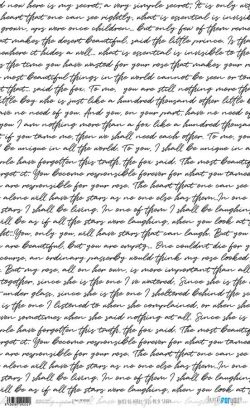 d now here is my secret, a very simple secret. It is only wi
heart that one can see rightly, what is essential is invisible
grown-ups were once children... but only few of them remem
at makes the desert beautiful, said the little prince, is tha
ewhere it hides a well... what is essential is invisible to the
s the time you have wasted for your rose that makes your r
most beautiful things in the world cannot be seen or to
that, said the fox. To me, you are still nothing more tha
little boy who is just like a hundred thousand other little
ve no need of you. And you, on your part, have no need of
you I am nothing more than a fox like a hundred thousand
if you tame me, then we shall need each other. To me, yo
be unique in all the world. To you, I shall be unique in all
ple have forgotten this truth, the fox said. The most beautif
rget it. You become responsible forever for what you tamed
are responsible for your rose. The heart that one can see
alone will have the stars as no one else has them. In
stars I shall be living. In one of them I shall be laughing.
ill be as if all the stars were laughing, when you look at
ht. You, only you, will have stars that can laugh. But you
are beautiful, but you are empty... One couldn't die for y
course, an ordinary passerby would think my rose looked
. But my rose, all on her own, is more important than all
together, since she is the one I've watered. Since she is the
under glass, since she is the one I sheltered behind the sc
is the one I listened to when she complained, or when she
ven sometimes when she said nothing at all. Since she is
ple have forgotten this truth, the fox said. The most beautif
rget it. You become responsible forever for what you tamed
are responsible for your rose. The heart that one can see
alone will have the stars as no one else has them. In
stars I shall be living. In one of them I shall be laughing.
ill be as if all the stars were laughing, when you look at